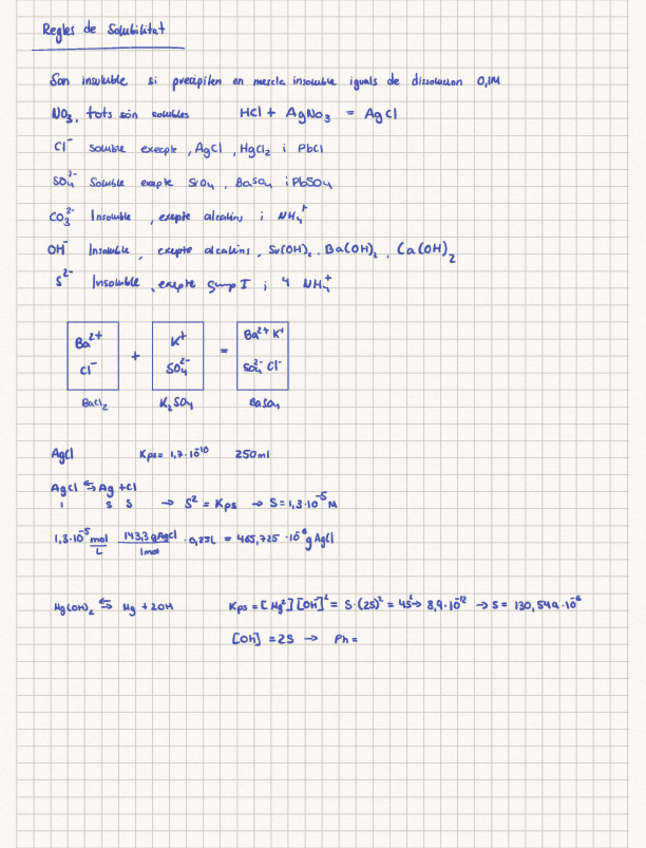 Regles de Solubilitat
Son insoluble si precipiten en mescla insoluble iguals de dissolucion 0,1M
NO₃, tots són solubles HCl + AgNO₃ = AgCl
Cl⁻ soluble execpte, AgCl, HgCl₂ i PbCl
SO₄²⁻ Soluble exepte SrO₄, BaSO₄ i PbSO₄
CO₃²⁻ Insoluble, exepte alcalins i NH₄⁺
OH⁻ Insoluble, exepto alcalins, Sr(OH)₂, Ba(OH)₂, Ca(OH)₂
S²⁻ Insoluble, exepte Grup I i 4 NH₄⁺
Ba²⁺ K⁺ Ba²⁺ K⁺
+ =
Cl⁻ SO₄²⁻ SO₄²⁻ Cl⁻
BaCl₂ K₂SO₄ BaSO₄
AgCl Kps= 1,7·10⁻¹⁰ 250ml
AgCl ⇆ Ag + Cl
1 S S → S² = Kps → S = 1,3·10⁻⁵ M
1,3·10⁻⁵ mol/L 143,3 g AgCl/1mol · 0,25L = 465,725 · 10⁻⁶ g AgCl
Mg(OH)₂ ⇆ Mg + 2OH Kps = [Mg²][OH]² = S·(2S)² = 4S³ → 8,9·10⁻¹² → S = 130,549·10⁻⁶
[OH] = 2S → Ph =